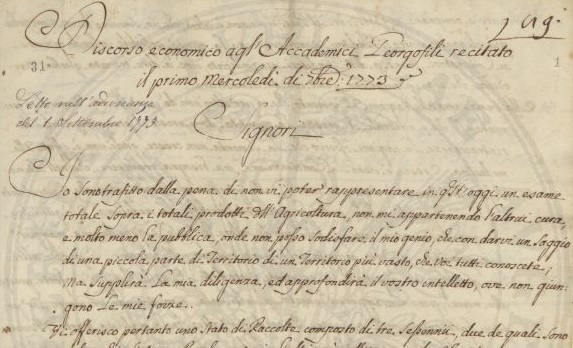 Lug.
31.
1
Discorso economico agl' Accademici Georgofili recitato
il primo Mercoledi di 7bre 1773
Letto nell'adunanza
del 1. Settembre 1773
Signori
Io sono trafitto dalla pena di non vi poter rappresentare in quest'oggi un esame
totale sopra i totali prodotti dell'Agricoltura, non mi appartenendo l'altrui cura,
e molto meno la pubblica, onde non posso sodisfare il mio genio, che con darvi un saggio
di una piccola parte di Territorio di un Territorio più vasto, che voi tutti conoscete;
Ma supplirà la mia diligenza, ed approfondirà il vostro intelletto, ove non giun-
gono le mie forze.
Vi offerisco pertanto uno Stato di Raccolte composto di tre Sessennii, due de quali sono